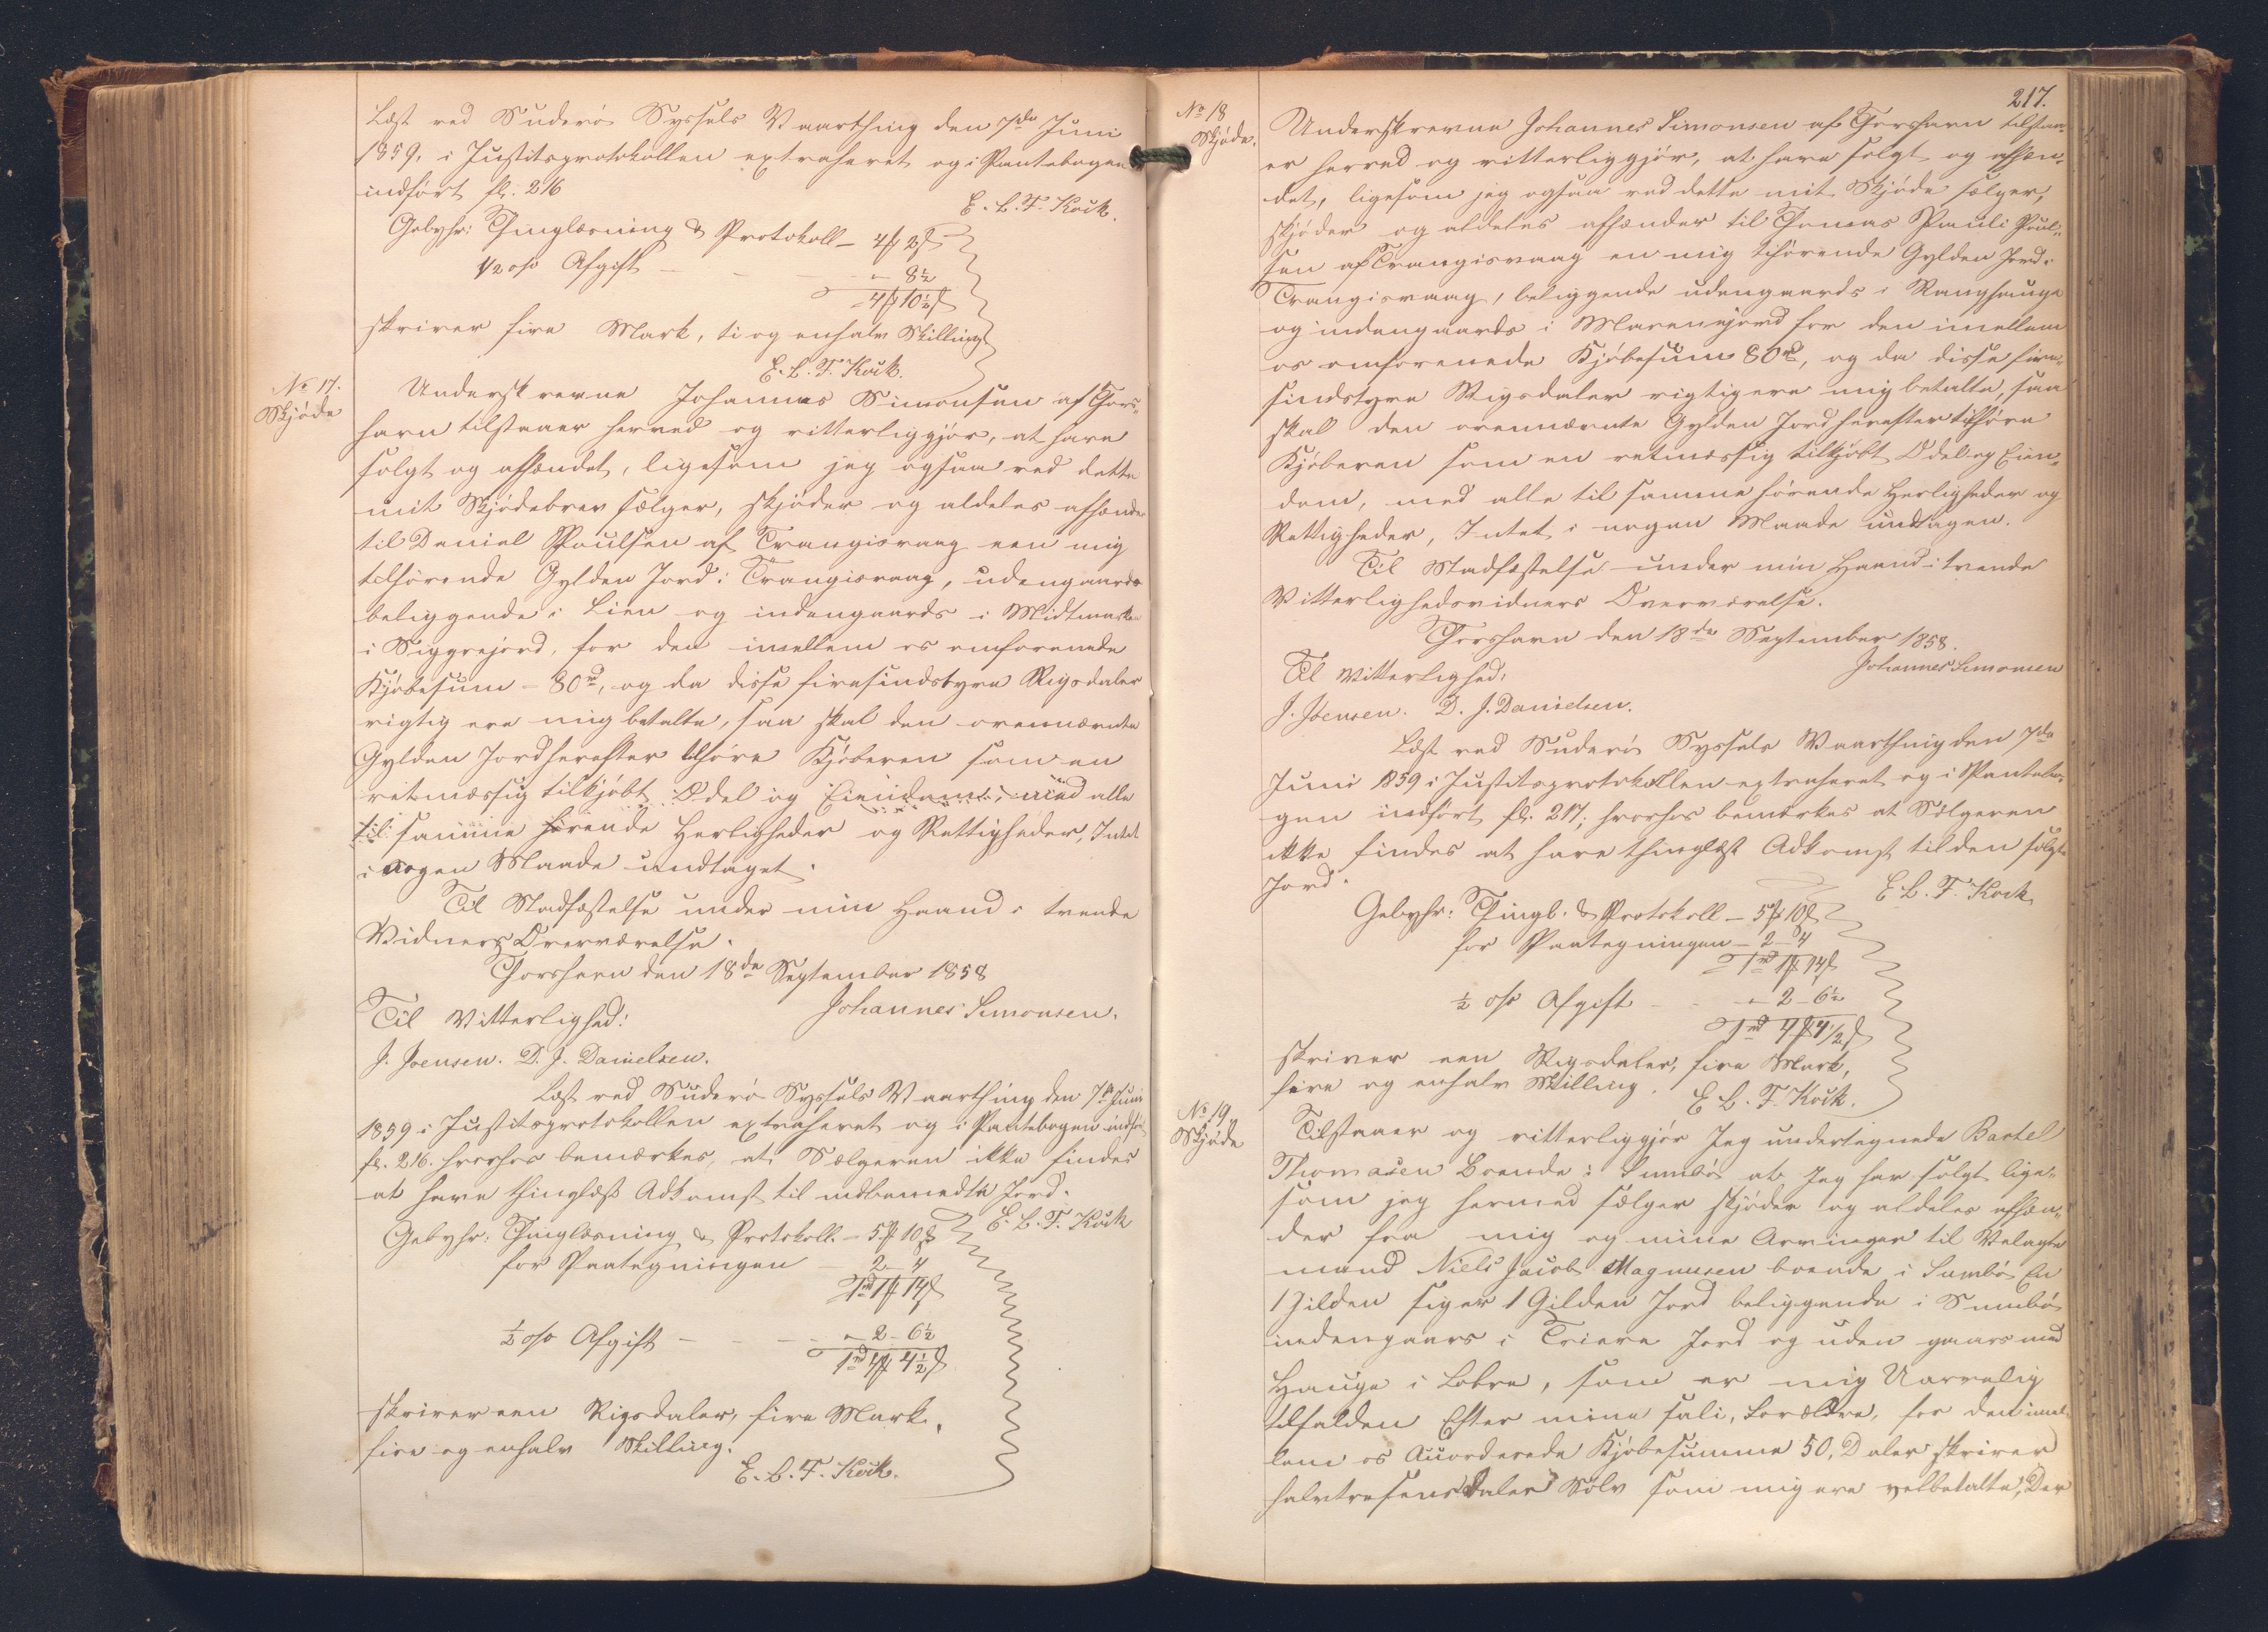 Læst ved Suderø Syssels Vaarthing den 7de Juni
1859, i Justitsprotokollen extraheret og i Pantebogen
indført fl: 216
E. L. T. Kock.
Gebyhr: Thinglæsning & Protokoll – 4 ℳ 2 ß
1/2 o/o Afgift – – „ – 8 1/2
4 ℳ 10 1/2 ß
skriver fire Mark, ti og enhalv Skilling
E. L. T. Kock.
No 17.
Skjøde
Underskrevne Johannes Simonsen af Thors-
havn tilstaaer herved og vitterliggjør, at have
solgt og afhændet, ligesom jeg ogsaa ved dette
mit Skjødebrev sælger, skjøder og aldeles afhænder
til Daniel Poulsen af Trangisvaag een mig
tilhørende Gylden Jord i Trangisvaag, udengaards
beliggende i Lien og indengaards i Midtmarken
i Siggrejord, for den imellem os omforenede
Kjøbesum – 80 rd, og da disse firesindstyve Rigsdaler
rigtig ere mig betalte, saa skal den ovennævnte
Gylden Jord herefter tilhøre Kjøberen som en
retmæssig tilkjøbt Odel og Eiendom, med alle
til samme hørende Herligheder og Rettigheder, Intet
i nogen Maade undtaget.
Til Stadfæstelse under min Haand i tvende
Vidners Overværelse.
Thorshavn den 18de September 1858
Til Vitterlighed: Johannes Simonsen.
J. Joensen. D. J. Danielsen.
Læst ved Suderø Syssels Vaarthing den 7de Juni
1859 i Justitsprotokollen extraheret og i Pantebogen indført
fl. 216. hvorhos bemærkes, at Sælgeren ikke findes
at have thinglæst Adkomst til indbemeldte Jord.
E. L. T. Kock
Gebyhr: Thinglæsning & Protokoll – 5 ℳ 10 ß
for Paategningen – 2 – 4
1 rd 1 ℳ 14 ß
1/2 o/o Afgift – – – „ – 2 – 6 1/2
1 rd 4 ℳ 4 1/2 ß
skriver een Rigsdaler, fire Mark,
fire og enhalv Skilling.
E. L. T. Kock.
217.
No 18
Skjøde.
Underskrevne Johannes Simonsen af Thorshavn tilstaa-
er herved og vitterliggjør, at have solgt og afhæn-
det, ligesom jeg ogsaa ved dette mit Skjøde sælger,
skjøder og aldeles afhænder til Thomas Pauli Poul-
sen af Trangisvaag en mig tilhørende Gylden Jord i
Trangisvaag, beliggende udengaards i Ranghauge
og indengaards i Marenejord for den imellem
os omforenede Kjøbesum 80 rd, og da disse fire-
sindstyve Rigsdaler rigtig ere mig betalte, saa
skal den ovennævnte Gylden Jord herefter tilhøre
Kjøberen som en retmæssig tilkjøbt Odel og Eien-
dom, med alle til samme hørende Herligheder og
Rettigheder, Intet i nogen Maade undtagen.
Til Stadfæstelse under min Haand i tvende
Vitterlighedsvidners Overværelse.
Thorshavn den 18de September 1858.
Til Vitterlighed: Johannes Simonsen
J. Joensen. D. J. Danielsen.
Læst ved Suderø Syssels Vaarthing den 7de
Juni 1859 i Justitsprotokollen extraheret og i Pantebo-
gen indført fl. 217; hvorhos bemærkes at Sælgeren
ikke findes at have thinglæst Adkomst til den solgte
Jord.
E. L. T. Kock
Gebyhr: Thingl. & Protokoll – 5 ℳ 10 ß
for Paategningen – 2 – 4
1 rd 1 ℳ 14 ß
1/2 o/o Afgift – – „ – 2 – 6 1/2
1 rd 4 ℳ 4 1/2 ß
skriver een Rigsdaler, fire Mark,
fire og enhalv Skilling.
E. L. T. Kock.
No 19.
Skjøde
Tilstaaer og vitterliggjør Jeg undertegnede Bartel
Thomasen Boende i Sumbø at Jeg har solgt lige-
som jeg hermed sælger skjøder og aldeles afhæn-
der fra mig og mine Arvinger til Velagte
mand Niels Jacob Magnusen boende i Sumbø En
1 Gilden siger 1 Gilden Jord beliggende i Sumbø
indengaars i Triere Jord og uden gaars med
Hauge i Lobra, som er mig Uarvelig
tilfalden Efter mine sali, Forældre, for den imel-
lem os Accorderede Kjøbesumme 50, Daler skriver
halvtresens daler Sølv som mig ere velbetalte, Der